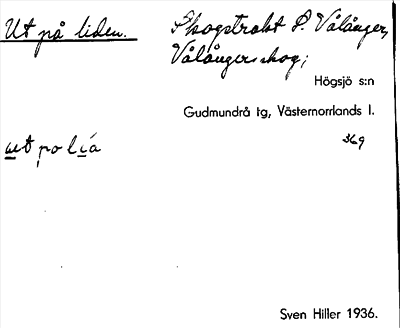 Ut på liden.
Skogstrakt S. Vålånger,
Vålångers skog;
Högsjö s:n
Gudmundrå tg, Västernorrlands l.
369
ut po lia
Sven Hiller 1936.